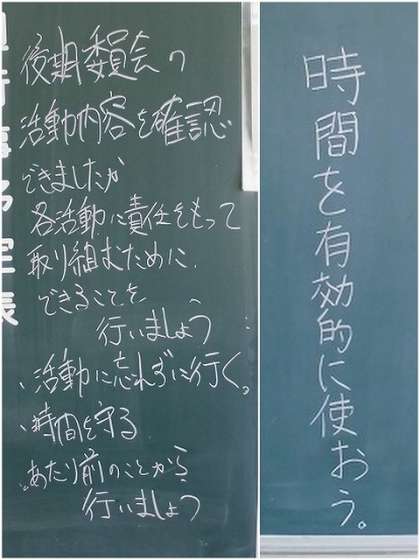 後期委員会の
活動内容を確認
できましたか
各活動に責任をもって
取り組むために、
できることを
行いましょう
・活動に忘れずに行く。
・時間を守る
あたり前のことから
行いましょう
時間を有効的に使おう。